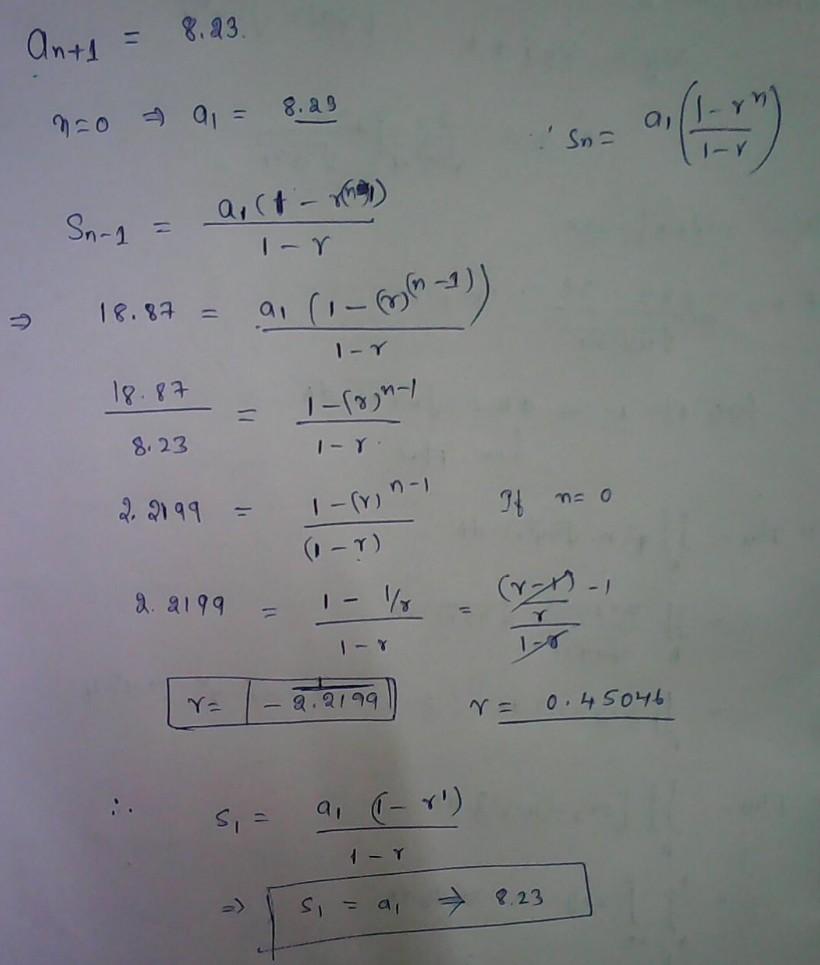 aₙ₊₁ = 8.23.
n=0 ⇒ a₁ = 8.23
∵ Sₙ = a₁((1-rⁿ)/(1-r))
Sₙ₋₁ = a₁(1 - r⁽ⁿ⁻¹⁾)/(1-r)
⇒ 18.87 = a₁(1-(r)⁽ⁿ⁻¹⁾)/(1-r)
18.87/8.23 = (1-(r)ⁿ⁻¹)/(1-r)
2.2199 = (1-(r)ⁿ⁻¹)/(1-r) If n=0
2.2199 = (1 - 1/r)/(1-r) = ((r-1)/r)/(1-r) -1
r= -1/2.2199 r= 0.45046
∴ S₁ = a₁(1-r¹)/(1-r)
⇒ S₁ = a₁ ⇒ 8.23